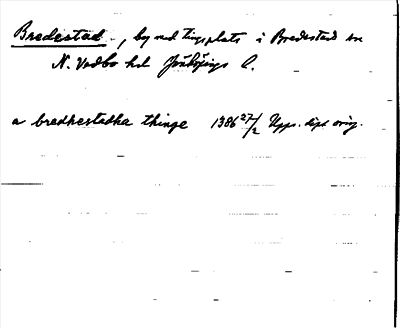 Bredestad, by med tingsplats i Bredestad sn
N. Vedbo hd Jönköpings l.
a bredhestadha thinge 1386 27/2 Upps. dipl. orig.